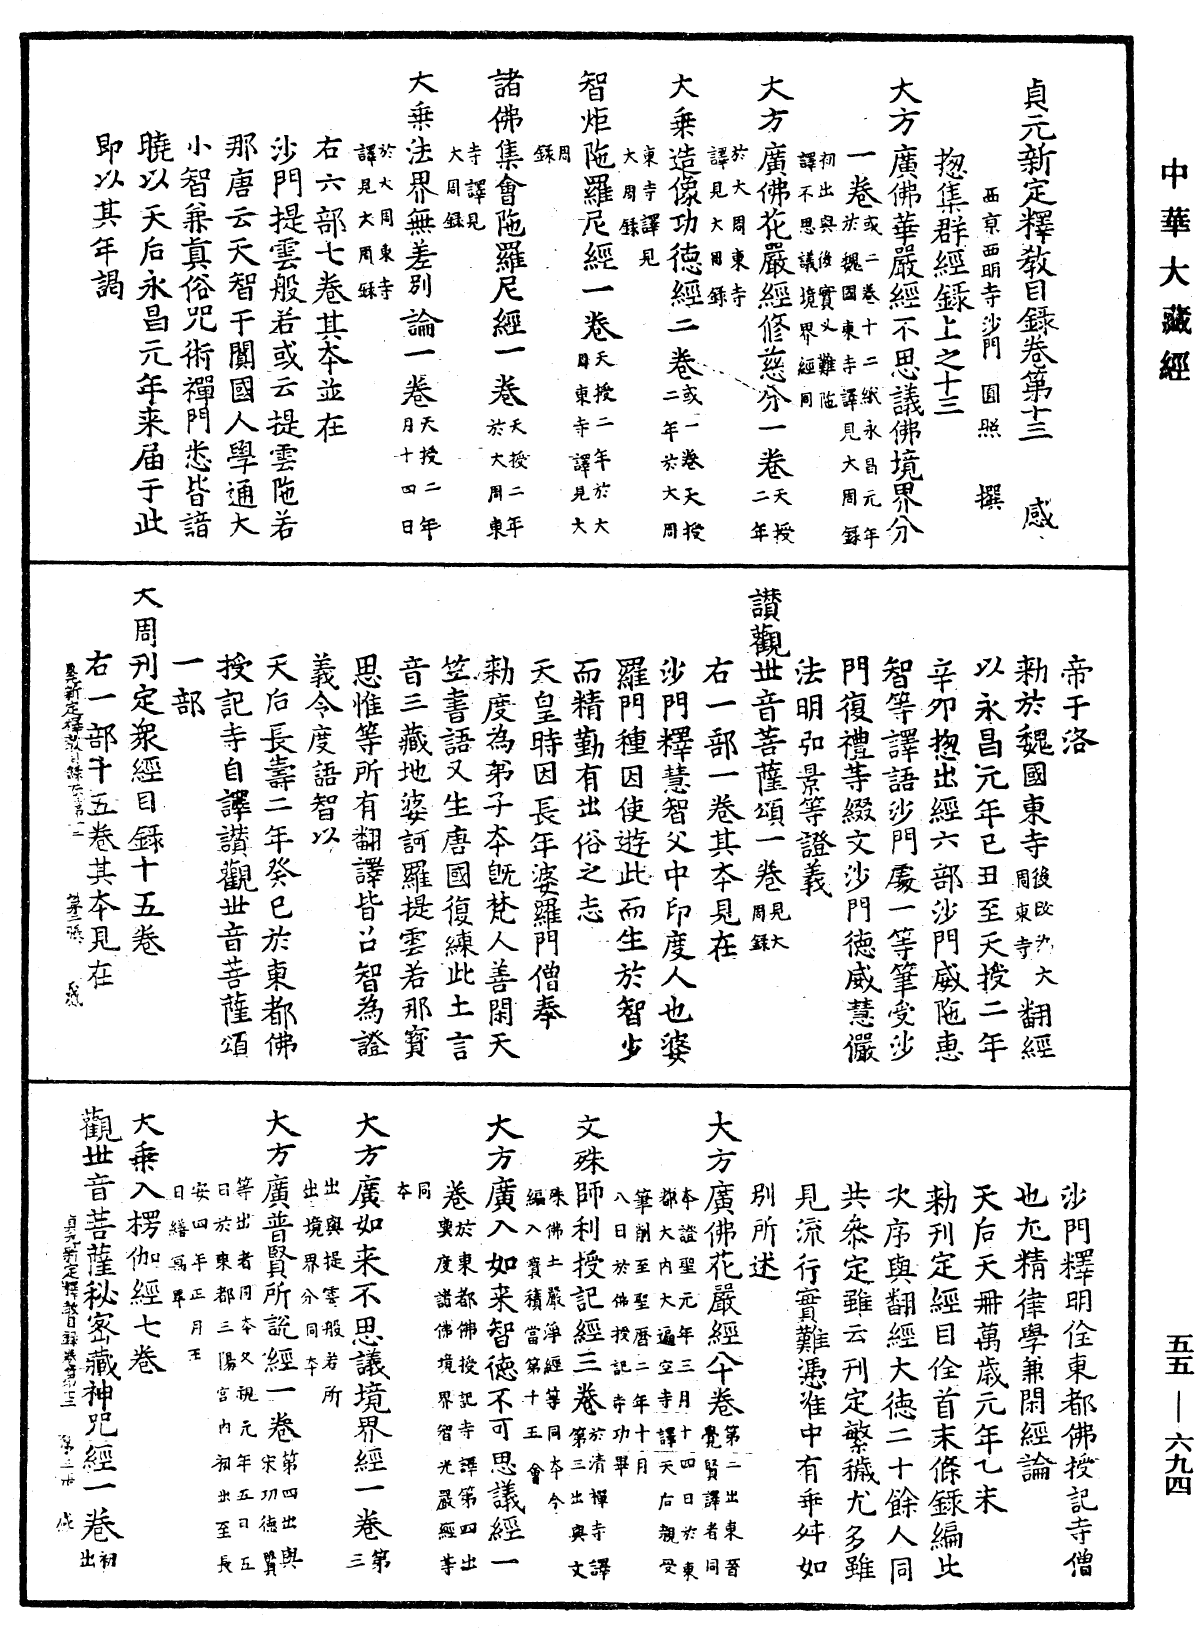 中華大藏經
貞元新定釋教目錄卷第十三　感
西京西明寺沙門　圓照　撰
揔集群經錄上之十三
大方廣佛華嚴經不思議佛境界分
一卷或二卷十二紙永昌元年於魏國東寺譯見大周錄
初出與後實叉難陁譯不思議境界經同
大方廣佛花嚴經修慈分一卷天授二年
於大周東寺譯見大周錄
大乗造像功德經二卷或一卷天授二年於大周
東寺譯見大周錄
智炬陁羅尼經一卷天授二年於大周東寺譯見大
周錄
諸佛集會陁羅尼經一卷天授二年於大周東
寺譯見大周錄
大乗法界無差別論一卷天授二年月十四日
於大周東寺譯見大周錄
右六部七卷其本並在
沙門提雲般若或云提雲陁若
那唐云天智于闐國人學通大
小智兼真俗咒術禪門悉皆諳
曉以天后永昌元年来届于此
即以其年謁
帝于洛
勑於魏國東寺後改為大周東寺翻經
以永昌元年已丑至天授二年
辛夘揔出經六部沙門威陁惠
智等譯語沙門處一等筆受沙
門復禮等綴文沙門德威慧儼
法明弘景等證義
讃觀丗音菩薩頌一卷見大周錄
右一部一卷其本見在
沙門釋慧智父中印度人也婆
羅門種因使遊此而生於智少
而精勤有出俗之志
天皇時因長年婆羅門僧奉
勑度為弟子本旣梵人善閑天
竺書語又生唐國復練此土言
音三藏地婆訶羅提雲若那寳
思惟等所有翻譯皆召智為證
義令度語智以
天后長壽二年癸巳於東都佛
授記寺自譯讃觀丗音菩薩頌
一部
大周刊定衆經目錄十五卷
右一部十五卷其本見在
貞新定釋教目錄卷第十三　第二張　感
沙門釋明佺東都佛授記寺僧
也尤精律學兼閑經論
天后天冊萬歳元年乙未
勑刊定經目佺首末條錄編比
次序與翻經大德二十餘人同
共參定雖云刊定繁穢尤多雖
見流行實難憑准中有乖舛如
別所述
大方廣佛花嚴經八十卷第二出東晉覺賢譯者同
本證聖元年三月十四日於東都大內大遍空寺譯天后親受
筆削至聖曆二年十月八日於佛授記寺功畢
文殊師利授記經三卷於清禪寺譯第三出與文
殊佛土嚴淨經等同本今編入寳積當第十五會
大方廣入如来智德不可思議經一
卷於東都佛授記寺譯第四出與度諸佛境界智光嚴經等
同本
大方廣如来不思議境界經一卷第三
出與提雲般若所出境界分同本
大方廣普賢所說經一卷第四出與宋功德賢
等出者同本久視元年五月五日於東都三陽宮內初出至長
安四年正月五日繕寫畢
大乗入楞伽經七卷
觀丗音菩薩秘密藏神咒經一卷初出
貞元新定釋教目錄卷第十三　第三張
五五—六九四